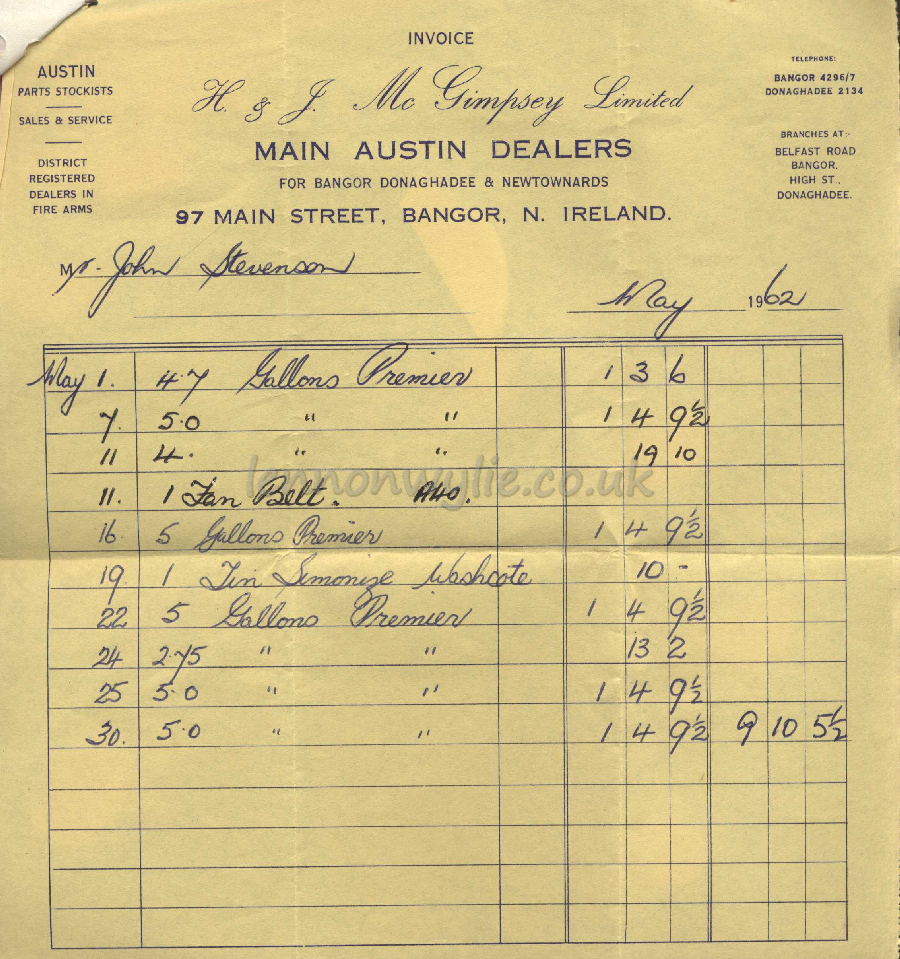 INVOICE
AUSTIN
PARTS STOCKISTS
SALES & SERVICE
DISTRICT
REGISTERED
DEALERS IN
FIRE ARMS
H. & J. Mc Gimpsey Limited
MAIN AUSTIN DEALERS
FOR BANGOR DONAGHADEE & NEWTOWNARDS
97 MAIN STREET, BANGOR, N. IRELAND.
TELEPHONE:
BANGOR 4296/7
DONAGHADEE 2134
BRANCHES AT:-
BELFAST ROAD
BANGOR.
HIGH ST.,
DONAGHADEE.
Mr. John Stevenson
May 1962
May 1. 4.7 Gallons Premier 1 3 6
7. 5.0 " " 1 4 9½
11 4. " " 19 10
lennonwylie.co.uk
11. 1 Fan Belt. A40.
16. 5 Gallons Premier 1 4 9½
19 1 Tin Simonize Washcote 10 -
22 5 Gallons Premier 1 4 9½
24 2.75 " " 13 2
25 5.0 " " 1 4 9½
30. 5.0 " " 1 4 9½ 9 10 5½